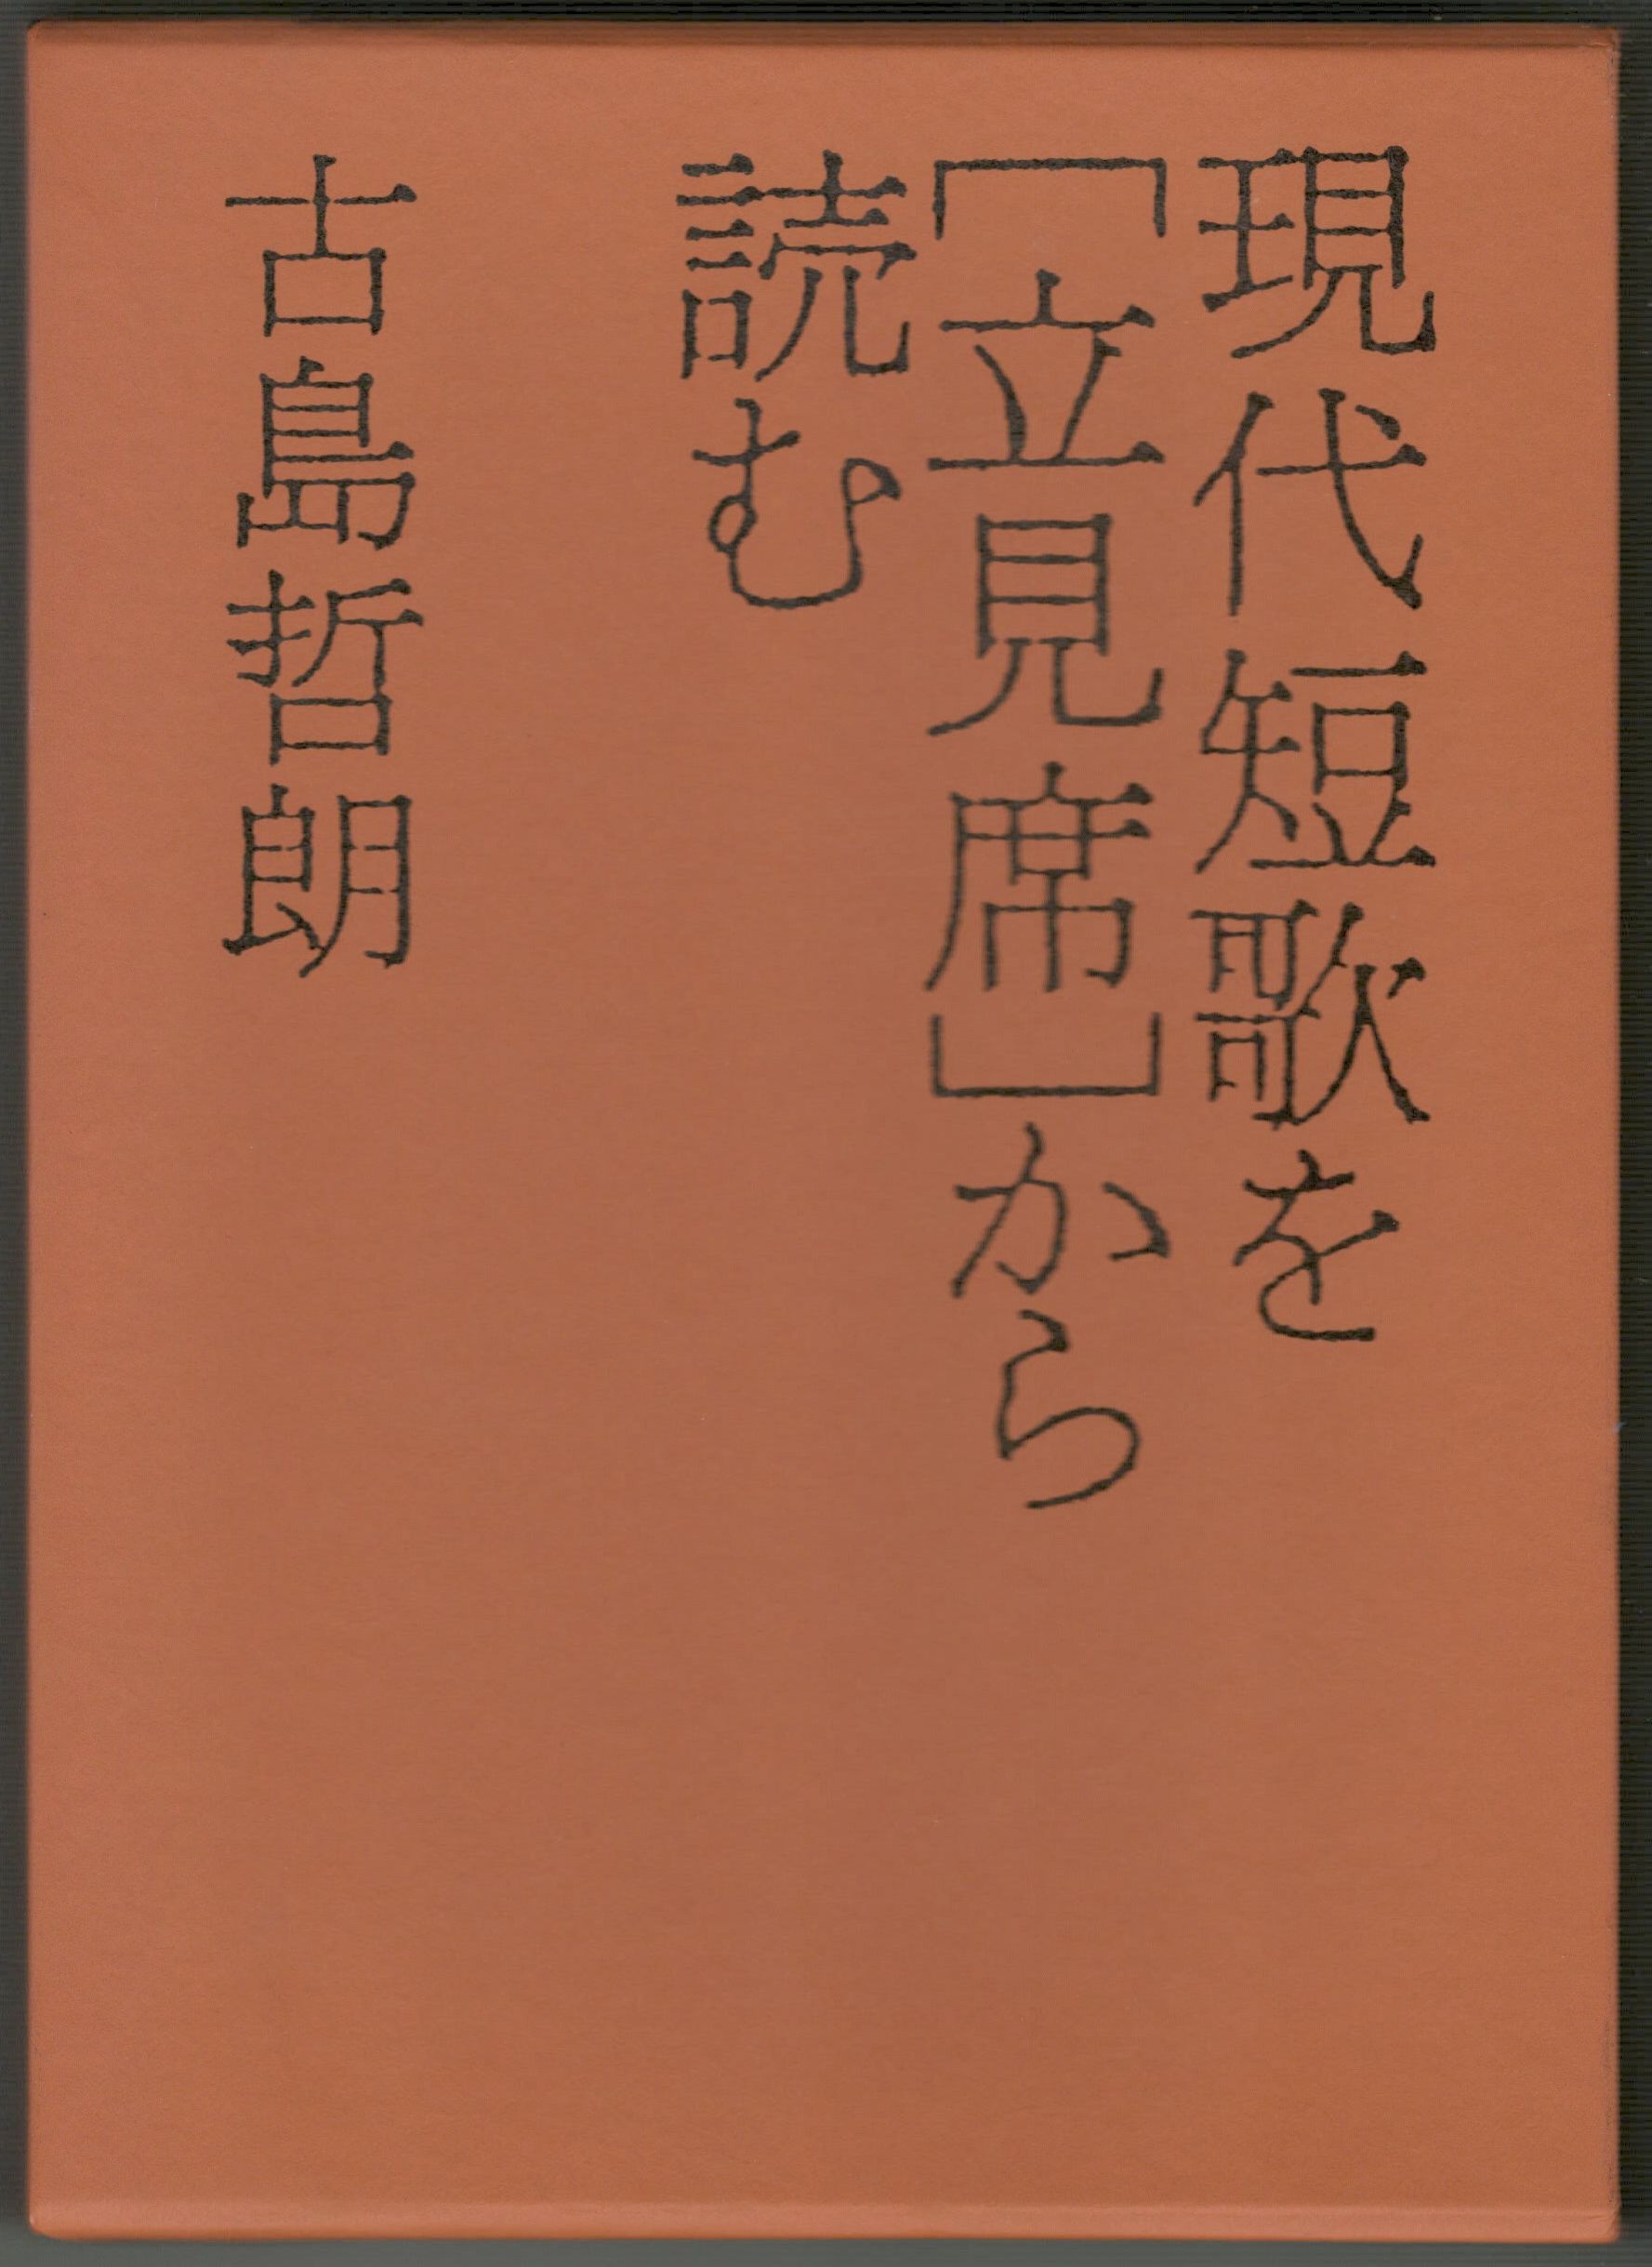 現代短歌を
［立見席］から
読む
古島哲朗